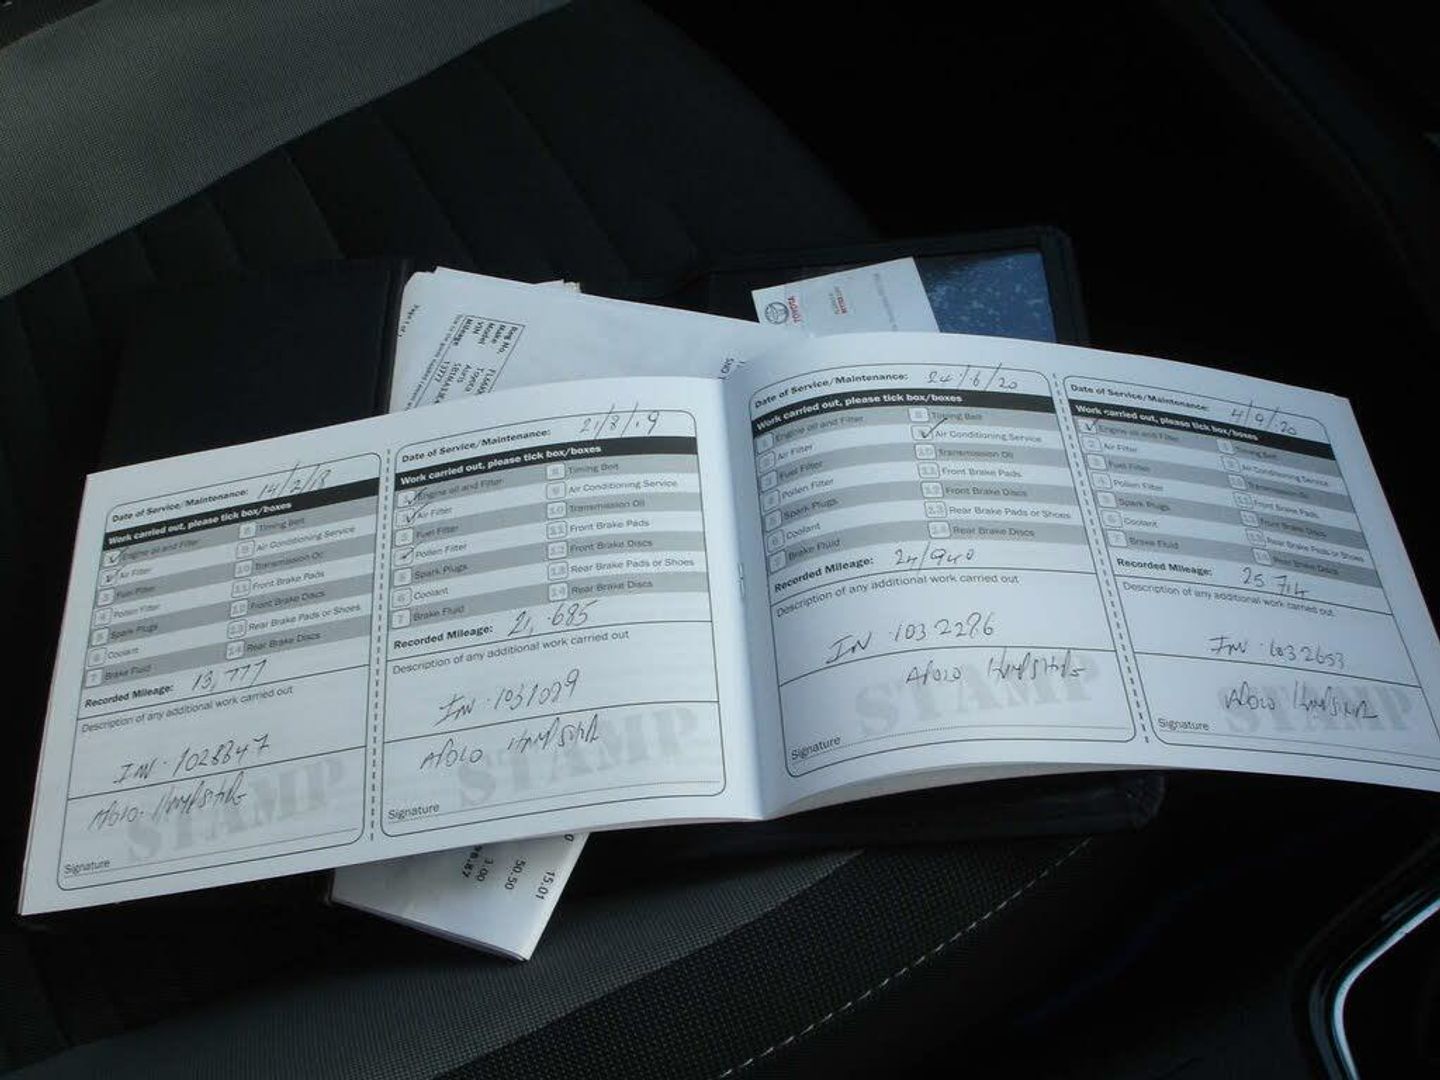 TOYOTA
Page 1 of
Reg No.
Make Toyota
Model Auris
VIN
Mileage 13777
Date of Service/Maintenance: 14/2/18
Work carried out, please tick box/boxes
1 Engine oil and Filter
2 Air Filter
3 Fuel Filter
4 Pollen Filter
5 Spark Plugs
6 Coolant
7 Brake Fluid
8 Timing Belt
9 Air Conditioning Service
10 Transmission Oil
11 Front Brake Pads
12 Front Brake Discs
13 Rear Brake Pads or Shoes
14 Rear Brake Discs
Recorded Mileage: 13,777
Description of any additional work carried out
INV. 1028847
STAMP
Signature
Date of Service/Maintenance: 21/8/19
Work carried out, please tick box/boxes
1 Engine oil and Filter
2 Air Filter
3 Fuel Filter
4 Pollen Filter
5 Spark Plugs
6 Coolant
7 Brake Fluid
8 Timing Belt
9 Air Conditioning Service
10 Transmission Oil
11 Front Brake Pads
12 Front Brake Discs
13 Rear Brake Pads or Shoes
14 Rear Brake Discs
Recorded Mileage: 21,685
Description of any additional work carried out
INV. 1031029
APOLO
STAMP
Signature
Date of Service/Maintenance: 24/6/20
Work carried out, please tick box/boxes
1 Engine oil and Filter
2 Air Filter
3 Fuel Filter
4 Pollen Filter
5 Spark Plugs
6 Coolant
7 Brake Fluid
8 Timing Belt
9 Air Conditioning Service
10 Transmission Oil
11 Front Brake Pads
12 Front Brake Discs
13 Rear Brake Pads or Shoes
14 Rear Brake Discs
Recorded Mileage: 24,940
Description of any additional work carried out
INV. 1032286
APOLO
STAMP
Signature
Date of Service/Maintenance: 4/9/20
Work carried out, please tick box/boxes
1 Engine oil and Filter
2 Air Filter
3 Fuel Filter
4 Pollen Filter
5 Spark Plugs
6 Coolant
7 Brake Fluid
8 Timing Belt
9 Air Conditioning Service
10 Transmission Oil
11 Front Brake Pads
12 Front Brake Discs
13 Rear Brake Pads or Shoes
14 Rear Brake Discs
Recorded Mileage: 25 714
Description of any additional work carried out
INV. 1032653
STAMP
Signature
15.01
50.50
3.00